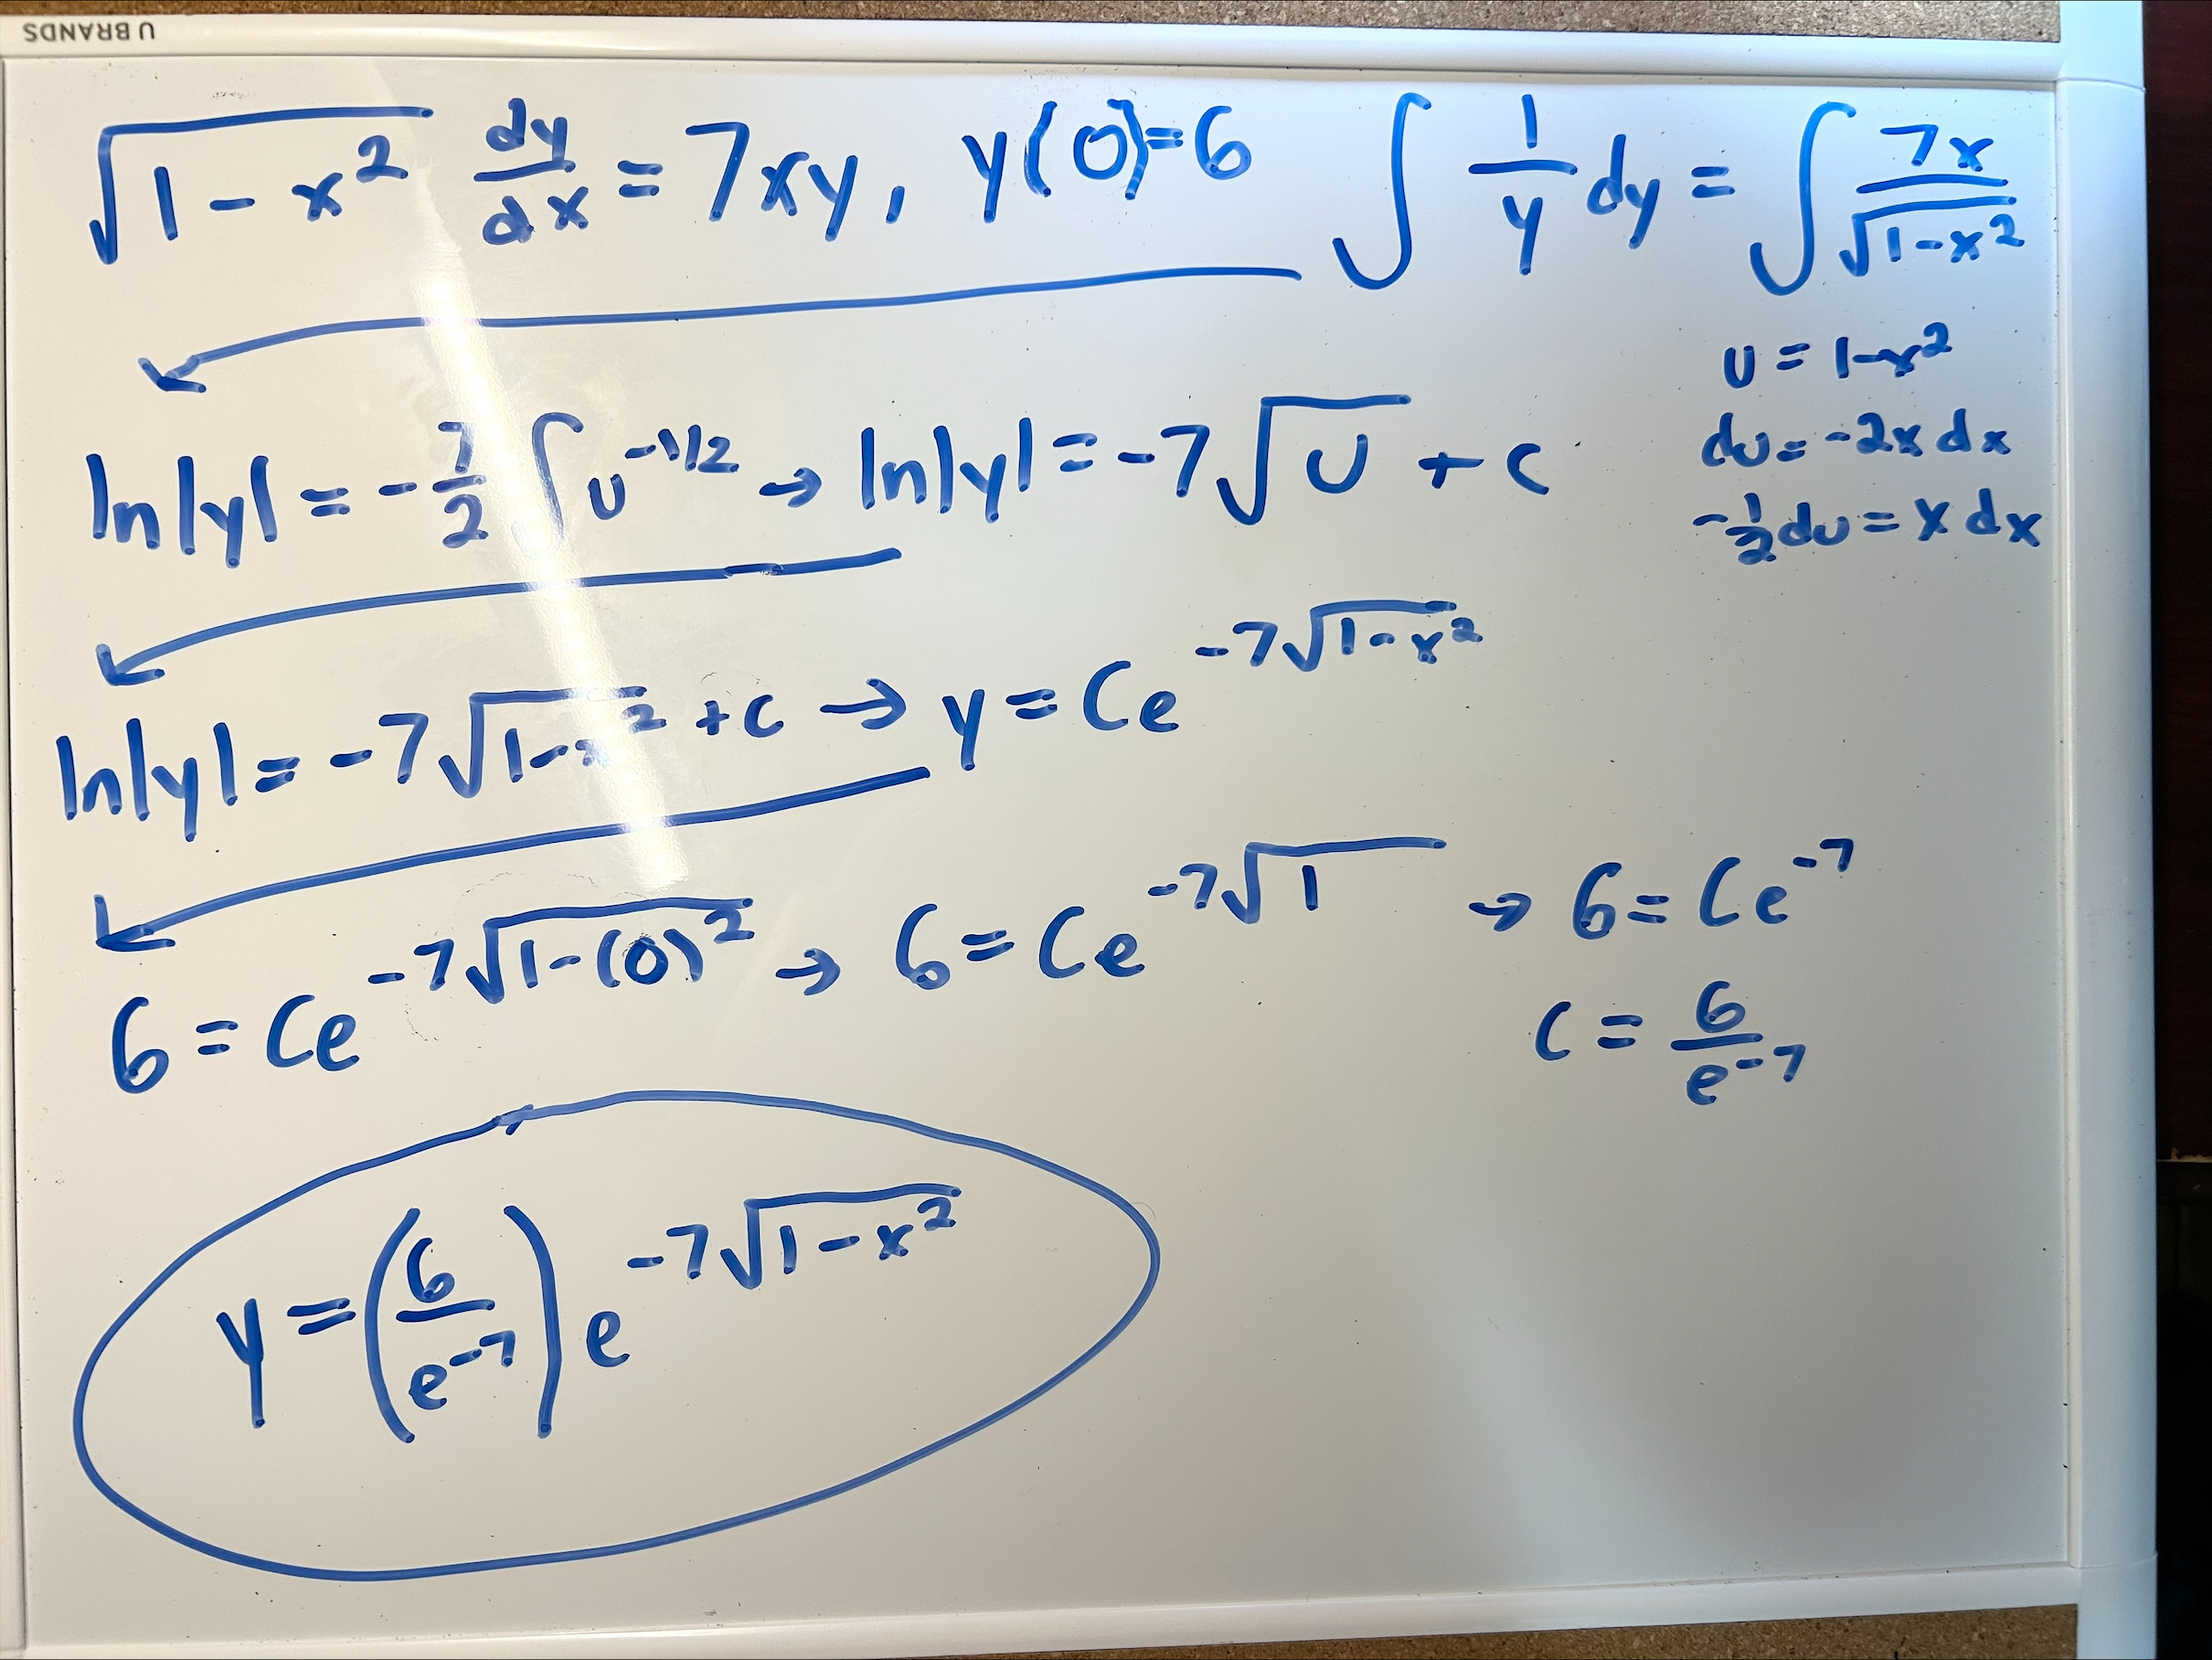 U BRANDS
√(1-x²) dy/dx = 7xy, y(0)=6 ∫ 1/y dy = ∫ 7x/√(1-x²)
u = 1-x²
du = -2x dx
-1/2 du = x dx
ln|y| = -7/2 ∫ u^(-1/2) → ln|y| = -7√u + c
ln|y| = -7√(1-x²) + c → y = Ce^(-7√(1-x²))
6 = Ce^(-7√(1-(0)²)) → 6 = Ce^(-7√1) → 6 = Ce^(-7)
C = 6/e^(-7)
y = (6/e^(-7)) e^(-7√(1-x²))